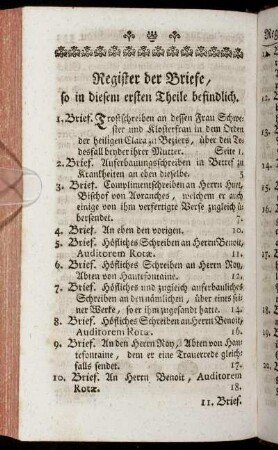 Register der Briefe,
so in diesem ersten Theile befindlich.
1. Brief. Trostschreiben an dessen Frau Schwe-
ster und Klosterfrau in dem Orden
der heiligen Clara zu Beziers, über den To-
desfall beyder ihrer Mutter. Seite 1.
2. Brief. Auferbauungsschreiben in Betref zu
Krankheiten an eben dieselbe. 5
3. Brief. Complimentschreiben an Herrn Huet,
Bischof von Avranches, welchem er auch
einige von ihm verfertigte Verse zugleich ü-
bersendet. 7.
4. Brief. An eben den vorigen. 10.
5. Brief. Höfliches Schreiben an Herrn Benoit,
Auditorem Rotæ. 11.
6. Brief. Höfliches Schreiben an Herrn Roy,
Abten von Hautefontaine. 12.
7. Brief. Höfliches und zugleich auferbauliches
Schreiben an den nämlichen, über eines sei-
ner Werke, so er ihm zugesandt hatte. 14.
8. Brief. Höfliches Schreiben an Herrn Benoit,
Auditorem Rotæ. 16.
9. Brief. An den Herrn Roy, Abten von Hau-
tefontaine, dem er eine Trauerrede gleich-
falls sendet. 17.
10. Brief. An Herrn Benoit, Auditorem
Rotæ. 18.
11. Brief.